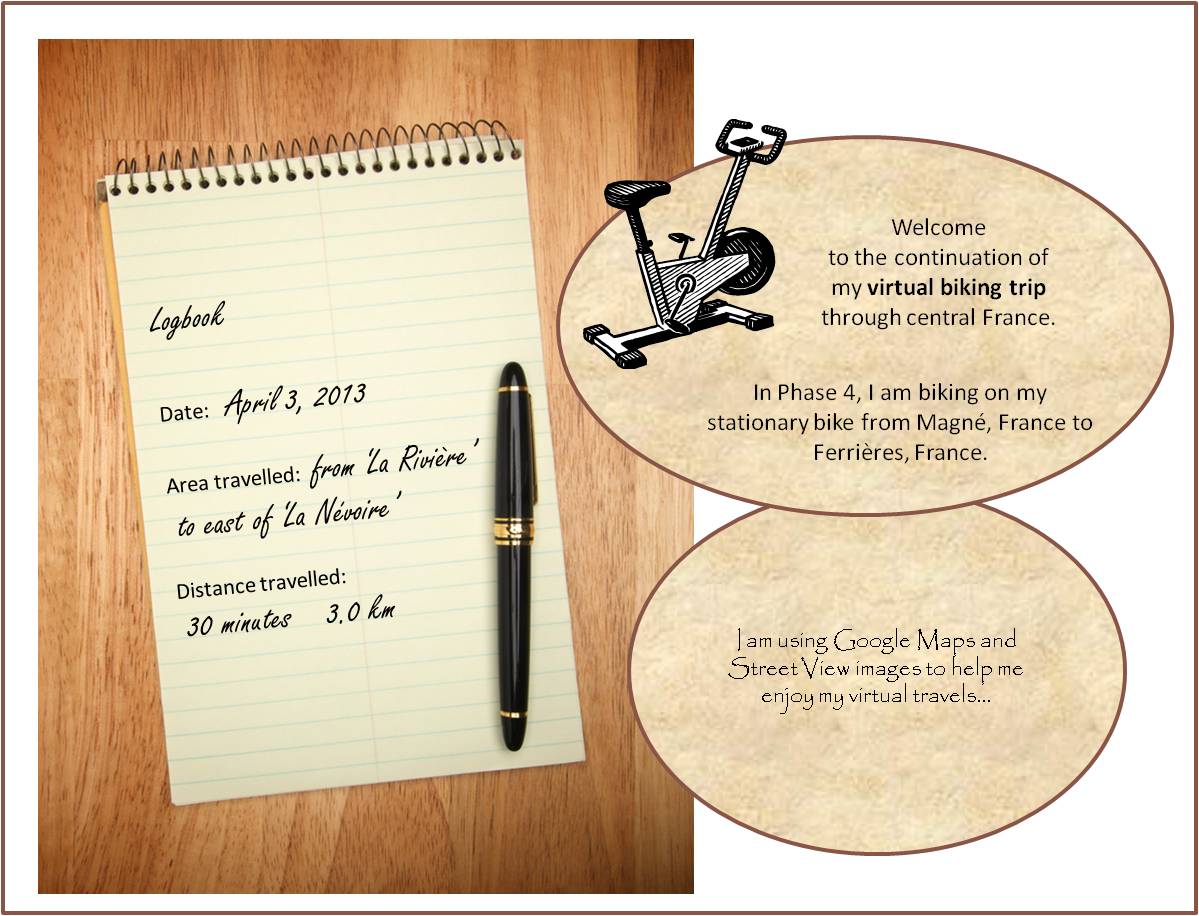 Logbook
Date: April 3, 2013
Area travelled: from 'La Rivière'
to east of 'La Névoire'
Distance travelled:
30 minutes 3.0 km
Welcome
to the continuation of
my virtual biking trip
through central France.
In Phase 4, I am biking on my
stationary bike from Magné, France to
Ferrières, France.
I am using Google Maps and
Street View images to help me
enjoy my virtual travels...